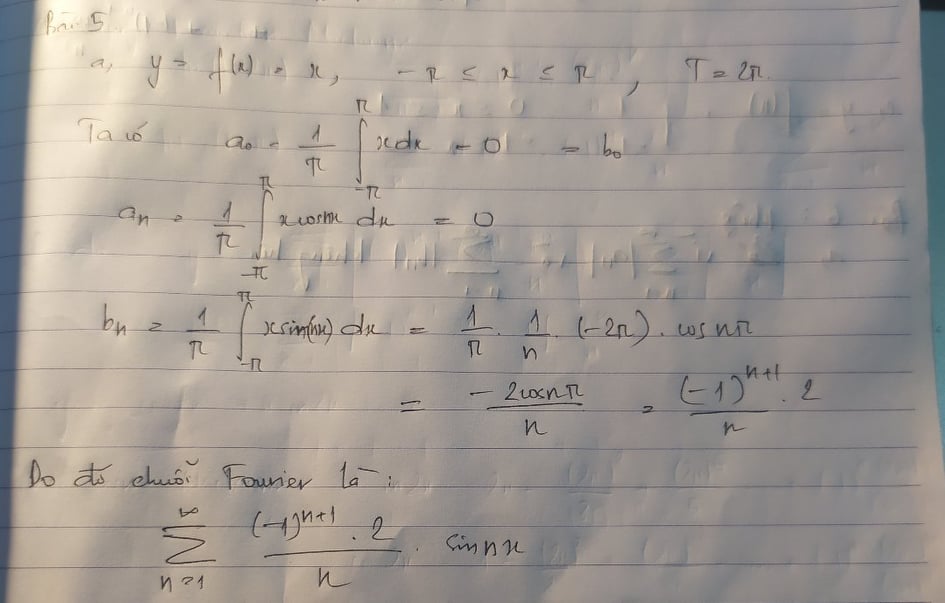 Bài 5
a, y = f(x) = x, -π ≤ x ≤ π, T = 2π.
Ta có a₀ = 1/π ∫_{-π}^{π} x dx = 0 = b₀
aₙ = 1/π ∫_{-π}^{π} x cosnx dx = 0
bₙ = 1/π ∫_{-π}^{π} x sin(nx) dx = 1/π . 1/n . (-2π) . cos nπ
= -2cosnπ / n = (-1)^{n+1} . 2 / n
Do đó chuỗi Fourier là :
∑_{n=1}^{∞} (-1)^{n+1} . 2 / n . sin nx